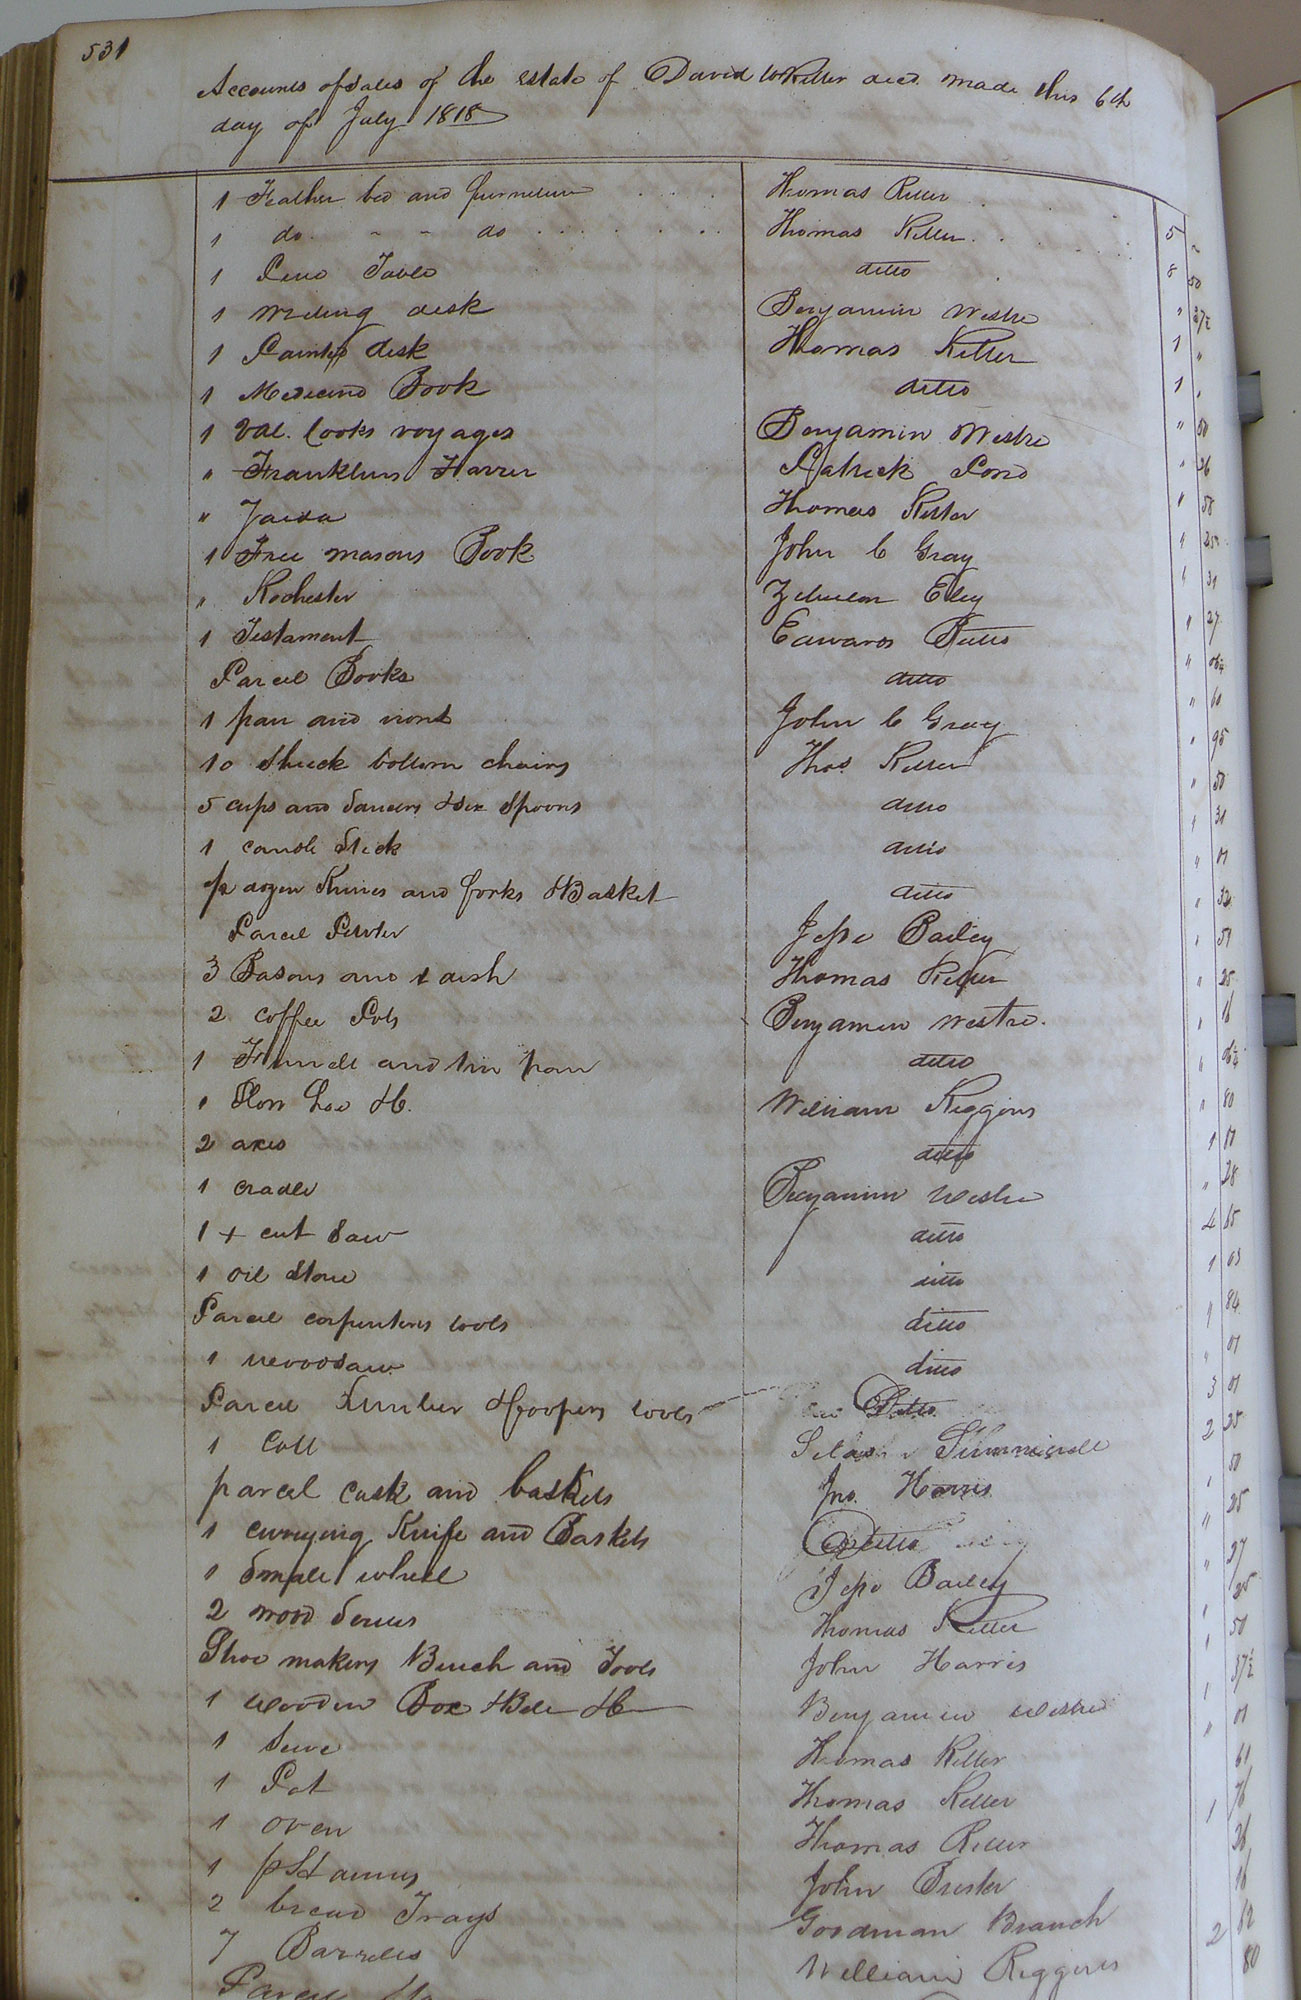 531
Accounts of Sales of the estate of David W Keller decd. made this 6th
day of July 1818
1 Feather bed and furniture Thomas Keller 5 "
1 do - - do Thomas Keller 8 50
1 Pine Table ditto " 27½
1 writing desk Benjamin Westre 1 "
1 Painted desk Thomas Keller 1 "
1 Medicine Book ditto " 50
1 Vol. Cooks voyages Benjamin Westre " 26
" Franklins Patrick Pond " 58
" Thomas Keller " 25
1 Free masons Book John C Gray " 31
" Rochester Zebulon Eley " 27
1 Testament Edward Butts " 06¼
Parcel Books ditto " 60
1 pan and irons John C Gray " 95
10 Shuck bottom chairs Thos. Keller " 50
5 cups and saucers & six Spoons ditto 31
1 candle Stick ditto " 01
½ dozen Knives and forks & Basket ditto " 32
Parcel Pewter Jesse Bailey " 51
3 Basons and 1 dish Thomas Keller " 25
2 coffee Pots Benjamin Westre. 16
1 Funnell and tin pan ditto " 06¼
1 Plow hoe &c. William Riggins " 80
2 axes ditto 1 81
1 cradle Benjamin Westre " 28
1 + cut Saw ditto 4 65
1 oil Stone ditto 1 03
Parcel carpenters tools ditto 84
1 ditto " 01
Parcel Lumber & Coopers tools Ditto 3 01
1 Colt Silas Summerell 2 25
parcel cask and baskets Jno. Harris 50
1 currying Knife and Baskets Ditto " 25
1 Small wheel Jesse Bailey " 37
2 wood Thomas Keller 25
Shoe makers Bench and Tools John Harris 50
1 wooden Box &c Benjamin Westre 37½
1 Sieve Thomas Keller " 01
1 Pot Thomas Keller 61
1 oven Thomas Keller 1 76
1 John 26
2 bread Trays Goodman Branch 16
7 Barrels William Riggins 2 62
Parcel 80